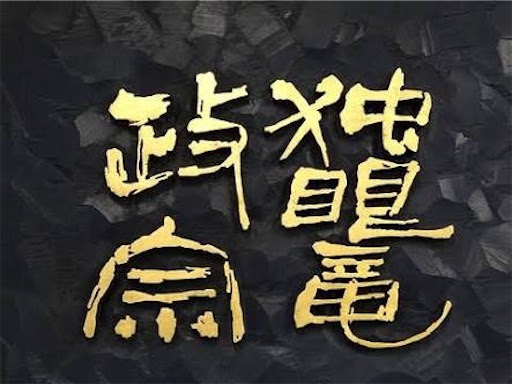 独眼竜
政宗